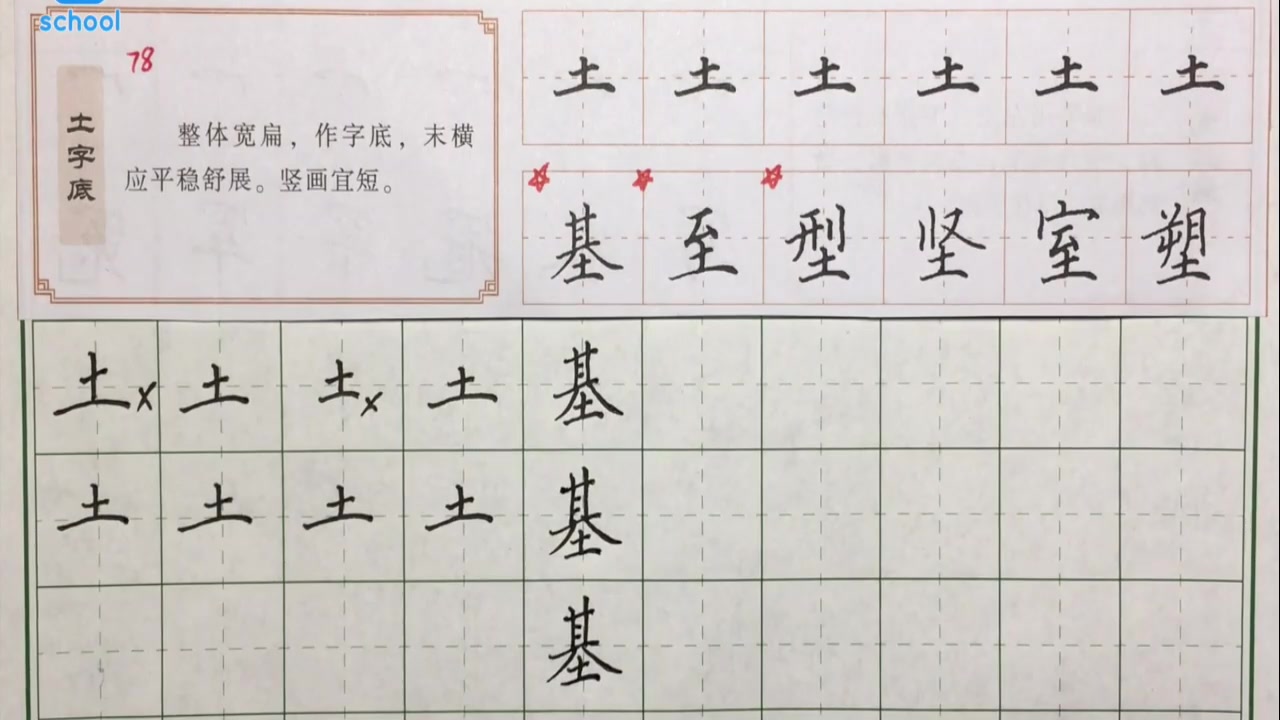 school
78
土字底
整体宽扁，作字底，末横
应平稳舒展。竖画宜短。
土 土 土 土 土 土
基 至 型 坚 室 塑
土 x 土 土 x 土 基
土 土 土 土 基
基